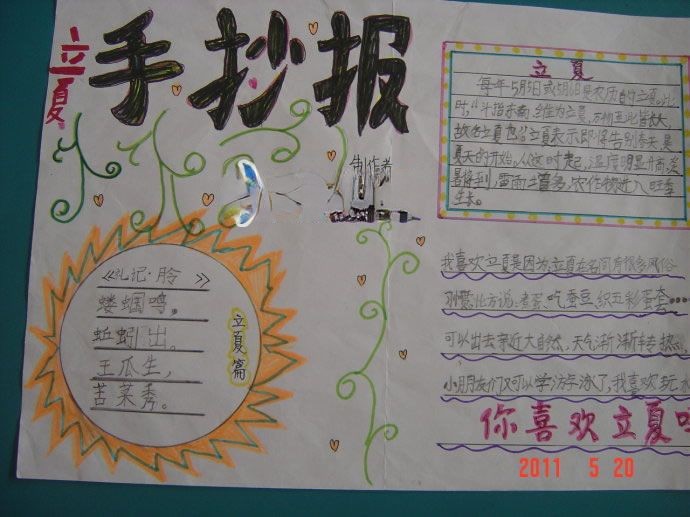 立夏
手抄报
制作者
立夏
每年5月5日或5月6日是农历的立夏。此
时,“斗指东南,维为立夏,万物至此皆长大,
故名立夏也。”立夏表示即将告别春天,是
夏天的开始。从这时起,温度明显升高,炎
暑将到,雷雨增多,农作物进入旺季
生长。
《礼记·月令》
蝼蝈鸣,
蚯蚓出。
王瓜生,
苦菜秀。
立夏篇
我喜欢立夏是因为,立夏在名间有很多风俗
习惯:比方说:煮蛋、吃蚕豆、织五彩蛋套……
可以出去亲近大自然、天气渐渐转热,
小朋友们又可以学游泳了,我喜欢玩水
你喜欢立夏吗
2011 5 20